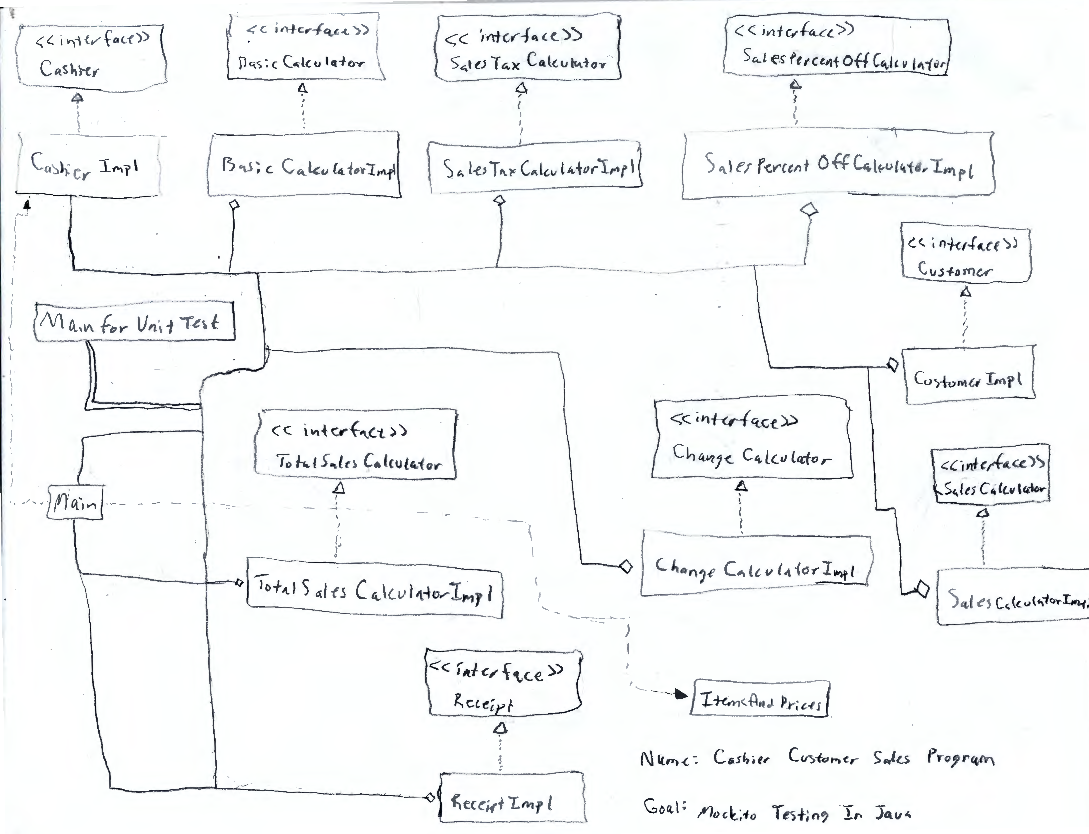 <<interface>>
Cashier
<<interface>>
Basic Calculator
<< interface>>
Sales Tax Calculator
<<interface>>
Sales Percent Off Calculator
Cashier Impl
Basic Calculator Impl
Sales Tax Calculator Impl
Sales Percent Off Calculator Impl
<<interface>>
Customer
Main for Unit Test
Customer Impl
<< interface>>
Total Sales Calculator
<<interface>>
Change Calculator
<<interface>>
Sales Calculator
Main
Total Sales Calculator Impl
Change Calculator Impl
Sales Calculator Impl
<<interface>>
Receipt
Items And Prices
Receipt Impl
Name: Cashier Customer Sales Program
Goal: Mockito Testing In Java